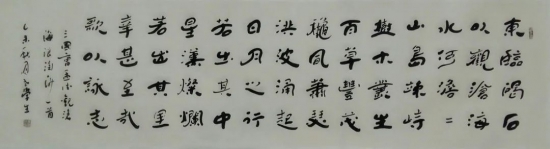 東臨碣石
以觀滄海
水何澹〻
山島竦峙
樹木叢生
百草豐茂
穐風蕭瑟
洪波涌起
日月之行
若出其中
星漢燦爛
若出其里
幸甚至哉
歌以詠志
三國曹孟德觀滄
海 一首
乙未秋月